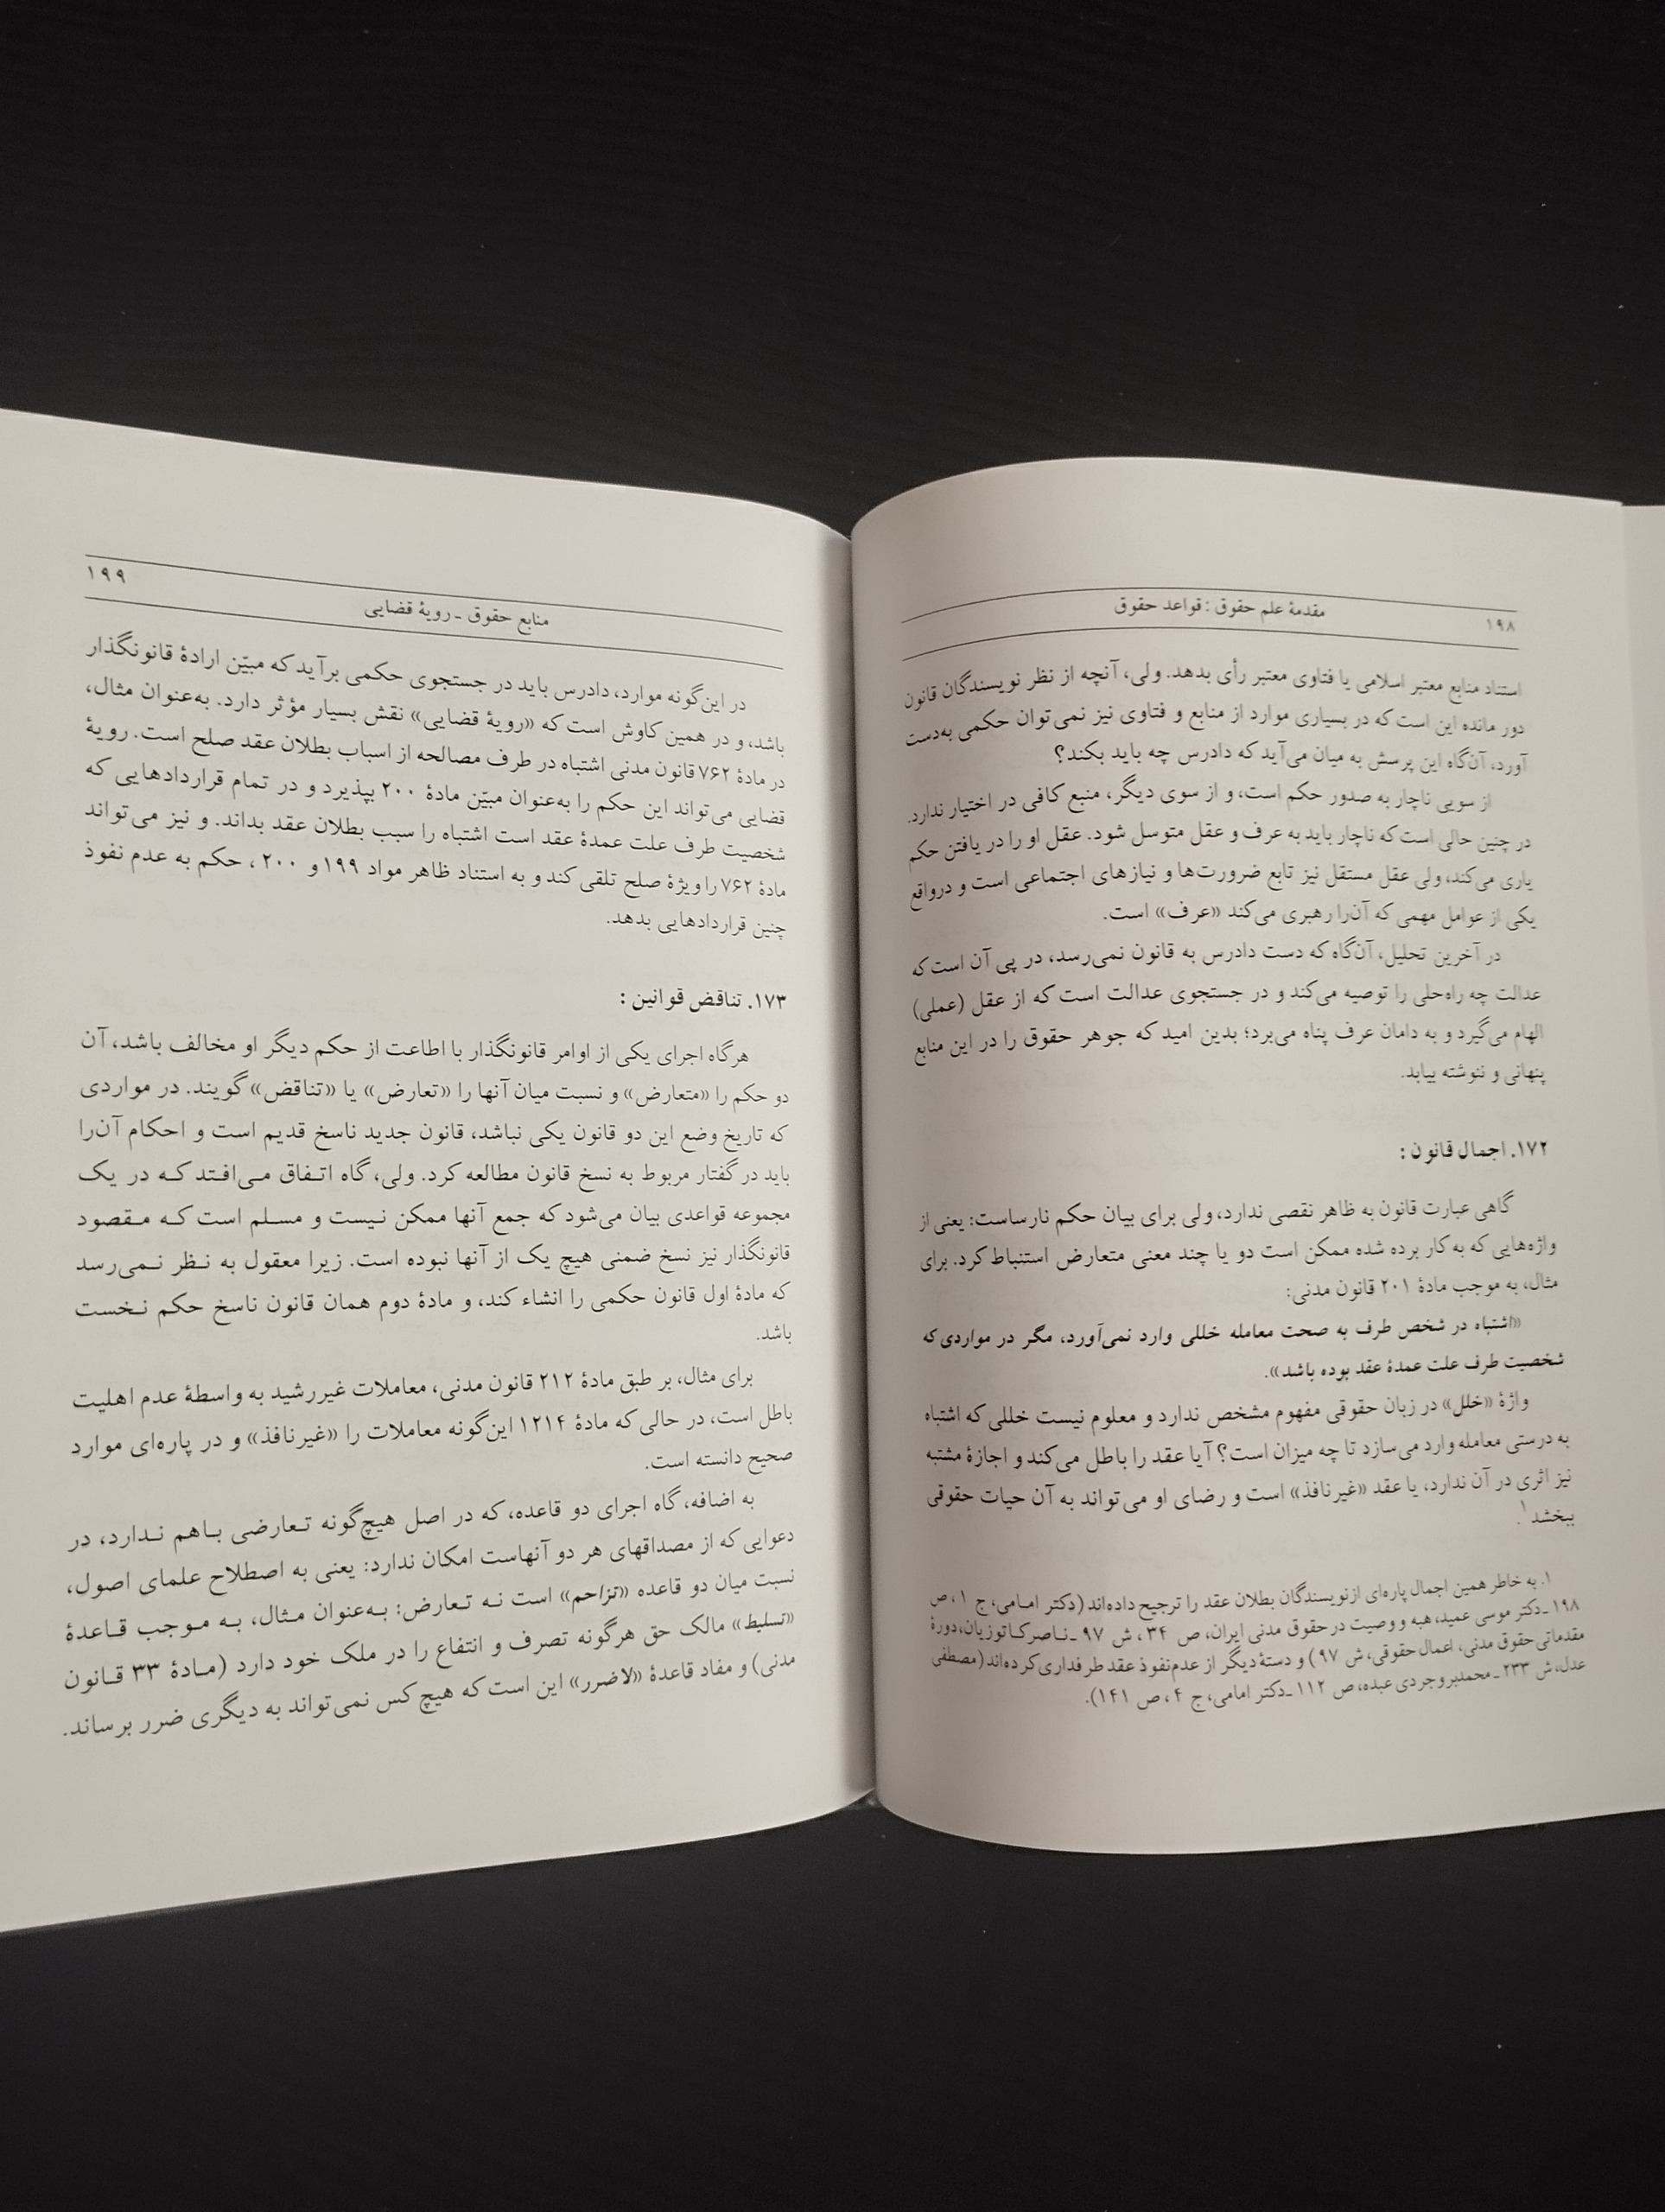 ۱۹۸
مقدمهٔ علم حقوق : قواعد حقوق
استناد منابع معتبر اسلامی یا فتاوی معتبر رأی بدهد. ولی، آنچه از نظر نویسندگان قانون
دور مانده این است که در بسیاری موارد از منابع و فتاوی نیز نمی‌توان حکمی به‌دست
آورد، آن‌گاه این پرسش به میان می‌آید که دادرس چه باید بکند؟
از سویی ناچار به صدور حکم است، و از سوی دیگر، منبع کافی در اختیار ندارد.
در چنین حالی است که ناچار باید به عرف و عقل متوسل شود. عقل او را در یافتن حکم
یاری می‌کند، ولی عقل مستقل نیز تابع ضرورت‌ها و نیازهای اجتماعی است و درواقع
یکی از عوامل مهمی که آن‌را رهبری می‌کند «عرف» است.
در آخرین تحلیل، آن‌گاه که دست دادرس به قانون نمی‌رسد، در پی آن است که
عدالت چه راه‌حلی را توصیه می‌کند و در جستجوی عدالت است که از عقل (عملی)
الهام می‌گیرد و به دامان عرف پناه می‌برد؛ بدین امید که جوهر حقوق را در این منابع
پنهانی و ننوشته بیابد.
۱۷۲. اجمال قانون :
گاهی عبارت قانون به ظاهر نقصی ندارد، ولی برای بیان حکم نارساست: یعنی از
واژه‌هایی که به کار برده شده ممکن است دو یا چند معنی متعارض استنباط کرد. برای
مثال، به موجب مادهٔ ۲۰۱ قانون مدنی:
«اشتباه در شخص طرف به صحت معامله خللی وارد نمی‌آورد، مگر در مواردی که
شخصیت طرف علت عمدهٔ عقد بوده باشد».
واژهٔ «خلل» در زبان حقوقی مفهوم مشخص ندارد و معلوم نیست خللی که اشتباه
به درستی معامله وارد می‌سازد تا چه میزان است؟ آیا عقد را باطل می‌کند و اجازهٔ مشتبه
نیز اثری در آن ندارد، یا عقد «غیرنافذ» است و رضای او می‌تواند به آن حیات حقوقی
ببخشد۱.
۱. به خاطر همین اجمال پاره‌ای ازنویسندگان بطلان عقد را ترجیح داده‌اند (دکتر امامی، ج ۱، ص
۱۹۸ ـ دکتر موسی عمید، هبه و وصیت در حقوق مدنی ایران، ص ۳۴، ش ۹۷ ـ ناصر کاتوزیان، دورهٔ
مقدماتی حقوق مدنی، اعمال حقوقی، ش ۹۷) و دستهٔ دیگر از عدم‌نفوذ عقد طرفداری کرده‌اند (مصطفی
عدل، ش ۲۳۳ ـ محمدبروجردی عبده، ص ۱۱۲ ـ دکتر امامی، ج ۴، ص ۱۴۱).
۱۹۹
منابع حقوق ـ رویهٔ قضایی
در این‌گونه موارد، دادرس باید در جستجوی حکمی برآید که مبیّن ارادهٔ قانونگذار
باشد، و در همین کاوش است که «رویهٔ قضایی» نقش بسیار مؤثر دارد. به‌عنوان مثال،
در مادهٔ ۷۶۲ قانون مدنی اشتباه در طرف مصالحه از اسباب بطلان عقد صلح است. رویهٔ
قضایی می‌تواند این حکم را به‌عنوان مبیّن مادهٔ ۲۰۰ بپذیرد و در تمام قراردادهایی که
شخصیت طرف علت عمدهٔ عقد است اشتباه را سبب بطلان عقد بداند. و نیز می‌تواند
مادهٔ ۷۶۲ را ویژهٔ صلح تلقی کند و به استناد ظاهر مواد ۱۹۹ و ۲۰۰ ، حکم به عدم نفوذ
چنین قراردادهایی بدهد.
۱۷۳. تناقض قوانین :
هرگاه اجرای یکی از اوامر قانونگذار با اطاعت از حکم دیگر او مخالف باشد، آن
دو حکم را «متعارض» و نسبت میان آنها را «تعارض» یا «تناقض» گویند. در مواردی
که تاریخ وضع این دو قانون یکی نباشد، قانون جدید ناسخ قدیم است و احکام آن‌را
باید در گفتار مربوط به نسخ قانون مطالعه کرد. ولی، گاه اتفاق می‌افتد که در یک
مجموعه قواعدی بیان می‌شود که جمع آنها ممکن نیست و مسلم است که مقصود
قانونگذار نیز نسخ ضمنی هیچ یک از آنها نبوده است. زیرا معقول به نظر نمی‌رسد
که مادهٔ اول قانون حکمی را انشاء کند، و مادهٔ دوم همان قانون ناسخ حکم نخست
باشد.
برای مثال، بر طبق مادهٔ ۲۱۲ قانون مدنی، معاملات غیررشید به واسطهٔ عدم اهلیت
باطل است، در حالی که مادهٔ ۱۲۱۴ این‌گونه معاملات را «غیرنافذ» و در پاره‌ای موارد
صحیح دانسته است.
به اضافه، گاه اجرای دو قاعده، که در اصل هیچ‌گونه تعارضی باهم ندارد، در
دعوایی که از مصداقهای هر دو آنهاست امکان ندارد: یعنی به اصطلاح علمای اصول،
نسبت میان دو قاعده «تزاحم» است نه تعارض: به‌عنوان مثال، به موجب قاعدهٔ
«تسلیط» مالک حق هرگونه تصرف و انتفاع را در ملک خود دارد (مادهٔ ۳۳ قانون
مدنی) و مفاد قاعدهٔ «لاضرر» این است که هیچ‌کس نمی‌تواند به دیگری ضرر برساند.